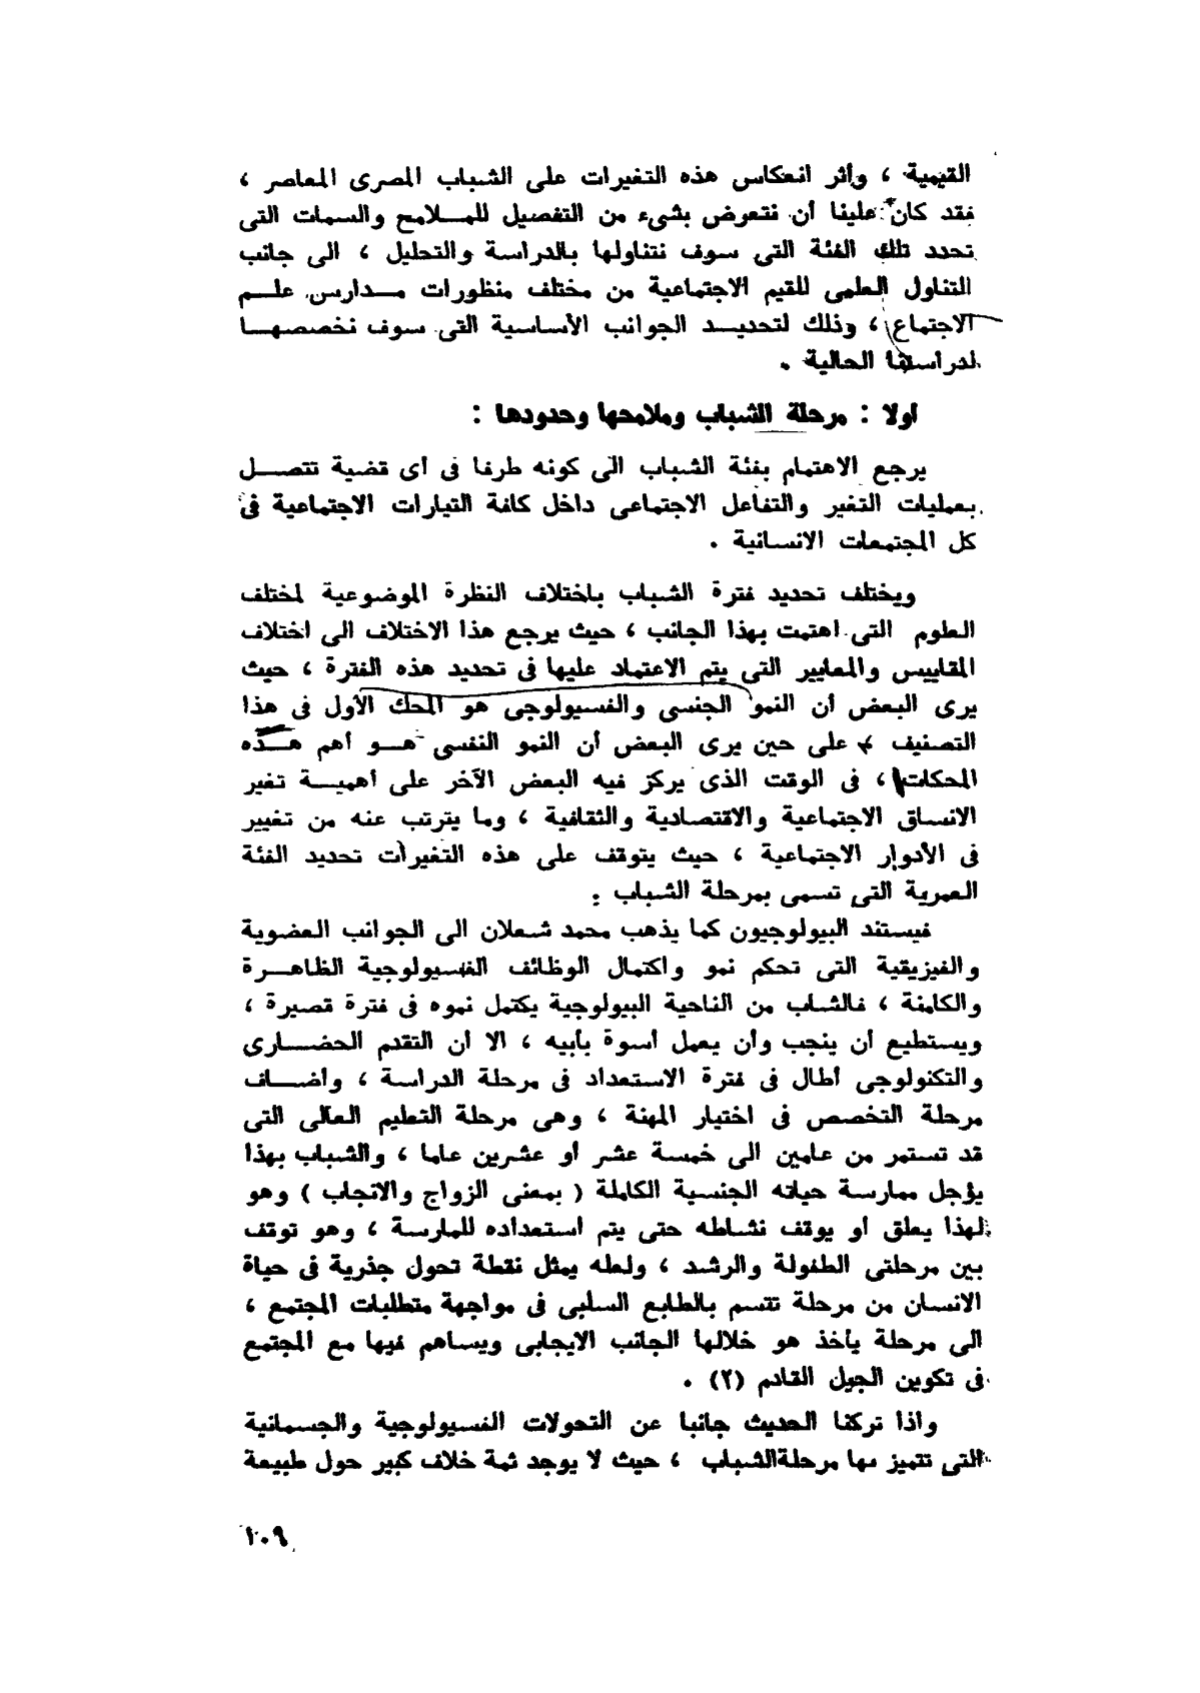 القيمية ، وأثر انعكاس هذه التغيرات على الشباب المصرى المعاصر ،
فقد كان علينا أن نتعرض بشىء من التفصيل للمـلامح والسمات التى
تحدد تلك الفئة التى سوف نتناولها بالدراسة والتحليل ، الى جانب
التناول العلمى للقيم الاجتماعية من مختلف منظورات مـدارس علـم
الاجتماع ، وذلك لتحديـد الجوانب الأساسية التى سوف نخصصهـا
لدراستنا الحالية .
أولا : مرحلة الشباب وملامحها وحدودها :
يرجع الاهتمام بفئة الشباب الى كونه طرفا فى أى قضية تتصـل
بعمليات التغير والتفاعل الاجتماعى داخل كافة التيارات الاجتماعية فى
كل المجتمعات الانسانية .
ويختلف تحديد فترة الشباب باختلاف النظرة الموضوعية لمختلف
العلوم التى اهتمت بهذا الجانب ، حيث يرجع هذا الاختلاف الى اختلاف
المقاييس والمعايير التى يتم الاعتماد عليها فى تحديد هذه الفترة ، حيث
يرى البعض أن النمو الجنسى والفسيولوجى هو المحك الأول فى هذا
التصنيف ، على حين يرى البعض أن النمو النفسى هـو أهم هـذه
المحكات ، فى الوقت الذى يركز فيه البعض الآخر على أهميـة تغير
الانساق الاجتماعية والاقتصادية والثقافية ، وما يترتب عنه من تغيير
فى الأدوار الاجتماعية ، حيث يتوقف على هذه التغيرات تحديد الفئة
العمرية التى تسمى بمرحلة الشباب :
فيستند البيولوجيون كما يذهب محمد شعلان الى الجوانب العضوية
والفيزيقية التى تحكم نمو واكتمال الوظائف الفسيولوجية الظاهـرة
والكامنة ، فالشاب من الناحية البيولوجية يكتمل نموه فى فترة قصيرة ،
ويستطيع أن ينجب وأن يعمل أسوة بأبيه ، الا أن التقدم الحضـارى
والتكنولوجى أطال فى فترة الاستعداد فى مرحلة الدراسة ، وأضـاف
مرحلة التخصص فى اختيار المهنة ، وهى مرحلة التعليم العالى التى
قد تستمر من عامين الى خمسة عشر أو عشرين عاما ، والشباب بهذا
يؤجل ممارسة حياته الجنسية الكاملة ( بمعنى الزواج والانجاب ) وهو
لهذا يعلق أو يوقف نشاطه حتى يتم استعداده للمارسة ، وهو توقف
بين مرحلتى الطفولة والرشد ، ولعله يمثل نقطة تحول جذرية فى حياة
الانسان من مرحلة تتسم بالطابع السلبى فى مواجهة متطلبات المجتمع ،
الى مرحلة يأخذ هو خلالها الجانب الايجابى ويساهم فيها مع المجتمع
فى تكوين الجيل القادم (٢) .
واذا تركنا الحديث جانبا عن التحولات الفسيولوجية والجسمانية
التى تتميز بها مرحلةالشباب ، حيث لا يوجد ثمة خلاف كبير حول طبيعة
١٠٩